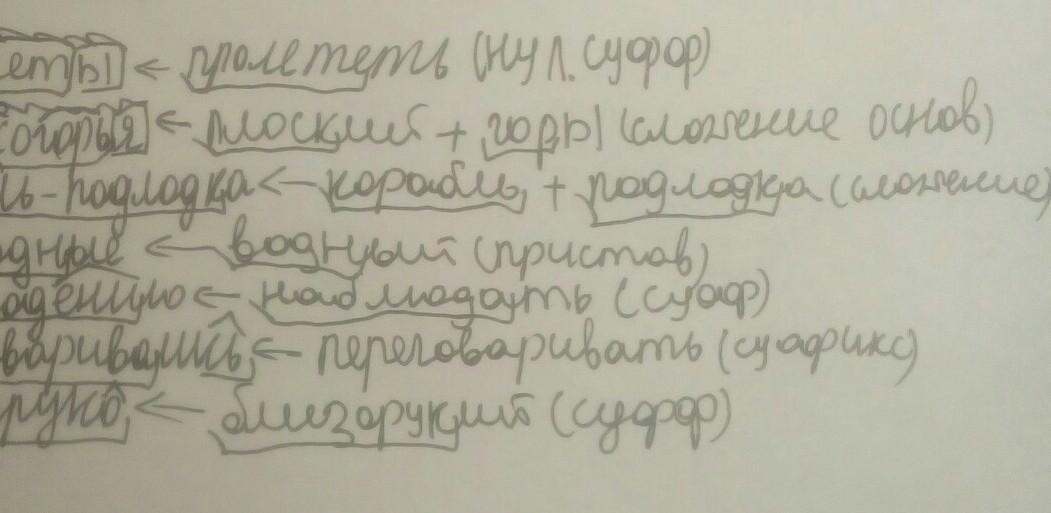 еты ← пролететь (нул. суфф)
согорья ← плоский + горы (сложение основ)
ь-подлодка ← корабль + подлодка (сложение)
дные ← водный (пристав)
адению ← наблюдать (суфф)
варивались ← переговаривать (суффикс)
руко ← близорукий (суфф)